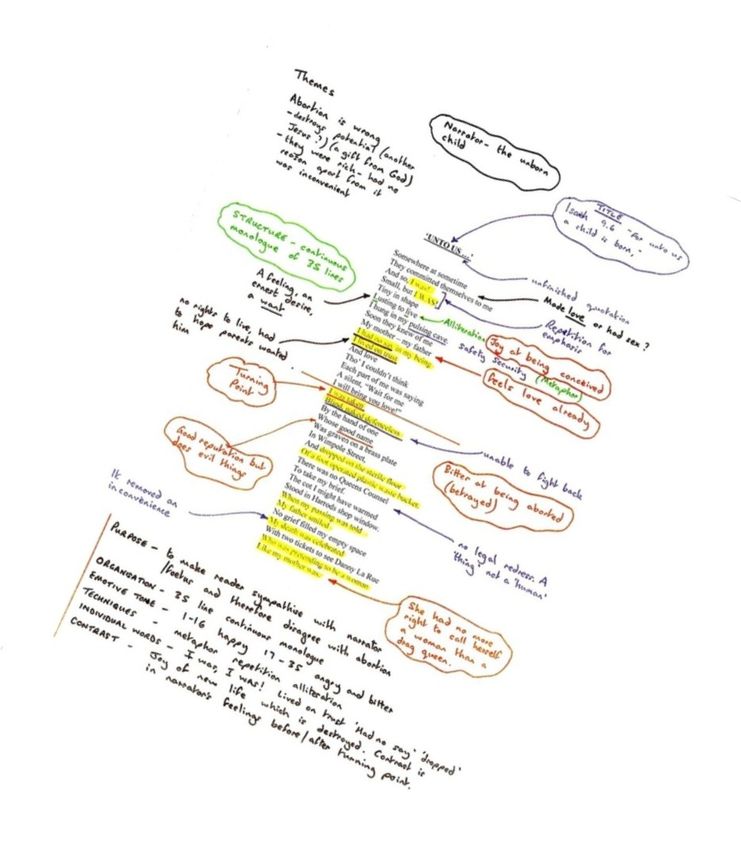 Themes
Abortion is wrong
- destroys potential (another
Jesus?) (a gift from God)
- they were rich - had no
reason apart from it
was inconvenient
Narrator - the unborn
child
TITLE
Isaah 9.6 "For unto us
a child is born,"
STRUCTURE - continuous
monologue of 35 lines
'UNTO US...'
Somewhere at sometime
They committed themselves to me
And so, I was!
Small, but I WAS!
Tiny in shape
Lusting to live
I hung in my pulsing cave.
Soon they knew of me
My mother – my father
I had no say in my being
I lived on trust
And love
Tho' I couldn't think
Each part of me was saying
A silent, "Wait for me
I will bring you love!"
I was taken
Blind, naked defenceless
By the hand of one
Whose good name
Was graven on a brass plate
In Wimpole Street,
And dropped on the sterile floor
Of a foot operated plastic waste bucket.
There was no Queens Counsel
To take my brief.
The cot I might have warmed
Stood in Harrods shop window.
When my passing was told
My father smiled.
No grief filled my empty space
My death was celebrated
With two tickets to see Danny La Rue
Who was pretending to be a woman
Like my mother was.
unfinished quotation
Made love or had sex?
Repetition for
emphasis
A feeling, an
ernest desire,
a want
Alliteration
safety security (Metaphor)
Joy at being conceived
Feels love already
no rights to live, had
to hope parents wanted
him
Turning
Point
Good reputation but
does evil things
unable to fight back
Bitter at being aborted
(betrayed)
It removed an
inconvenience
no legal redress. A
'thing' not a 'human'
She had no more
right to call herself
a woman than a
drag queen.
PURPOSE - to make reader sympathise with narrator
/foetus and therefore disagree with abortion
ORGANSATION - 35 line continuous monologue
EMOTIVE TONE - 1-16 happy 17-35 angry and bitter
TECHNIQUES - metaphor repetition alliteration
INDIVIDUAL WORDS - I was, I was! Lived on trust 'Had no say' 'dropped'
CONTRAST - Joy of new life which is destroyed. Contrast is
in narrator's feelings before/after turning point.